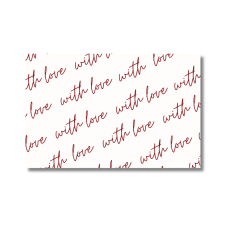 with love
with love with love
with love with love with love
with love with love with love
with love with love with love
with love with love